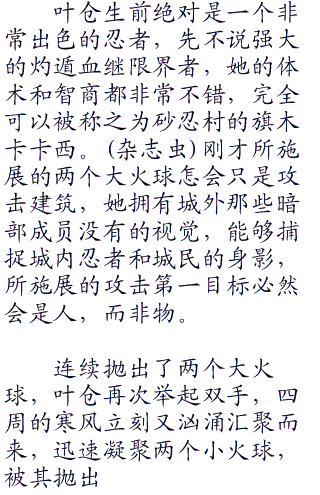 叶仓生前绝对是一个非
常出色的忍者，先不说强大
的灼遁血继限界者，她的体
术和智商都非常不错，完全
可以被称之为砂忍村的旗木
卡卡西。(杂志虫)刚才所施
展的两个大火球怎会只是攻
击建筑，她拥有城外那些暗
部成员没有的视觉，能够捕
捉城内忍者和城民的身影，
所施展的攻击第一目标必然
会是人，而非物。
连续抛出了两个大火
球，叶仓再次举起双手，四
周的寒风立刻又汹涌汇聚而
来，迅速凝聚两个小火球，
被其抛出